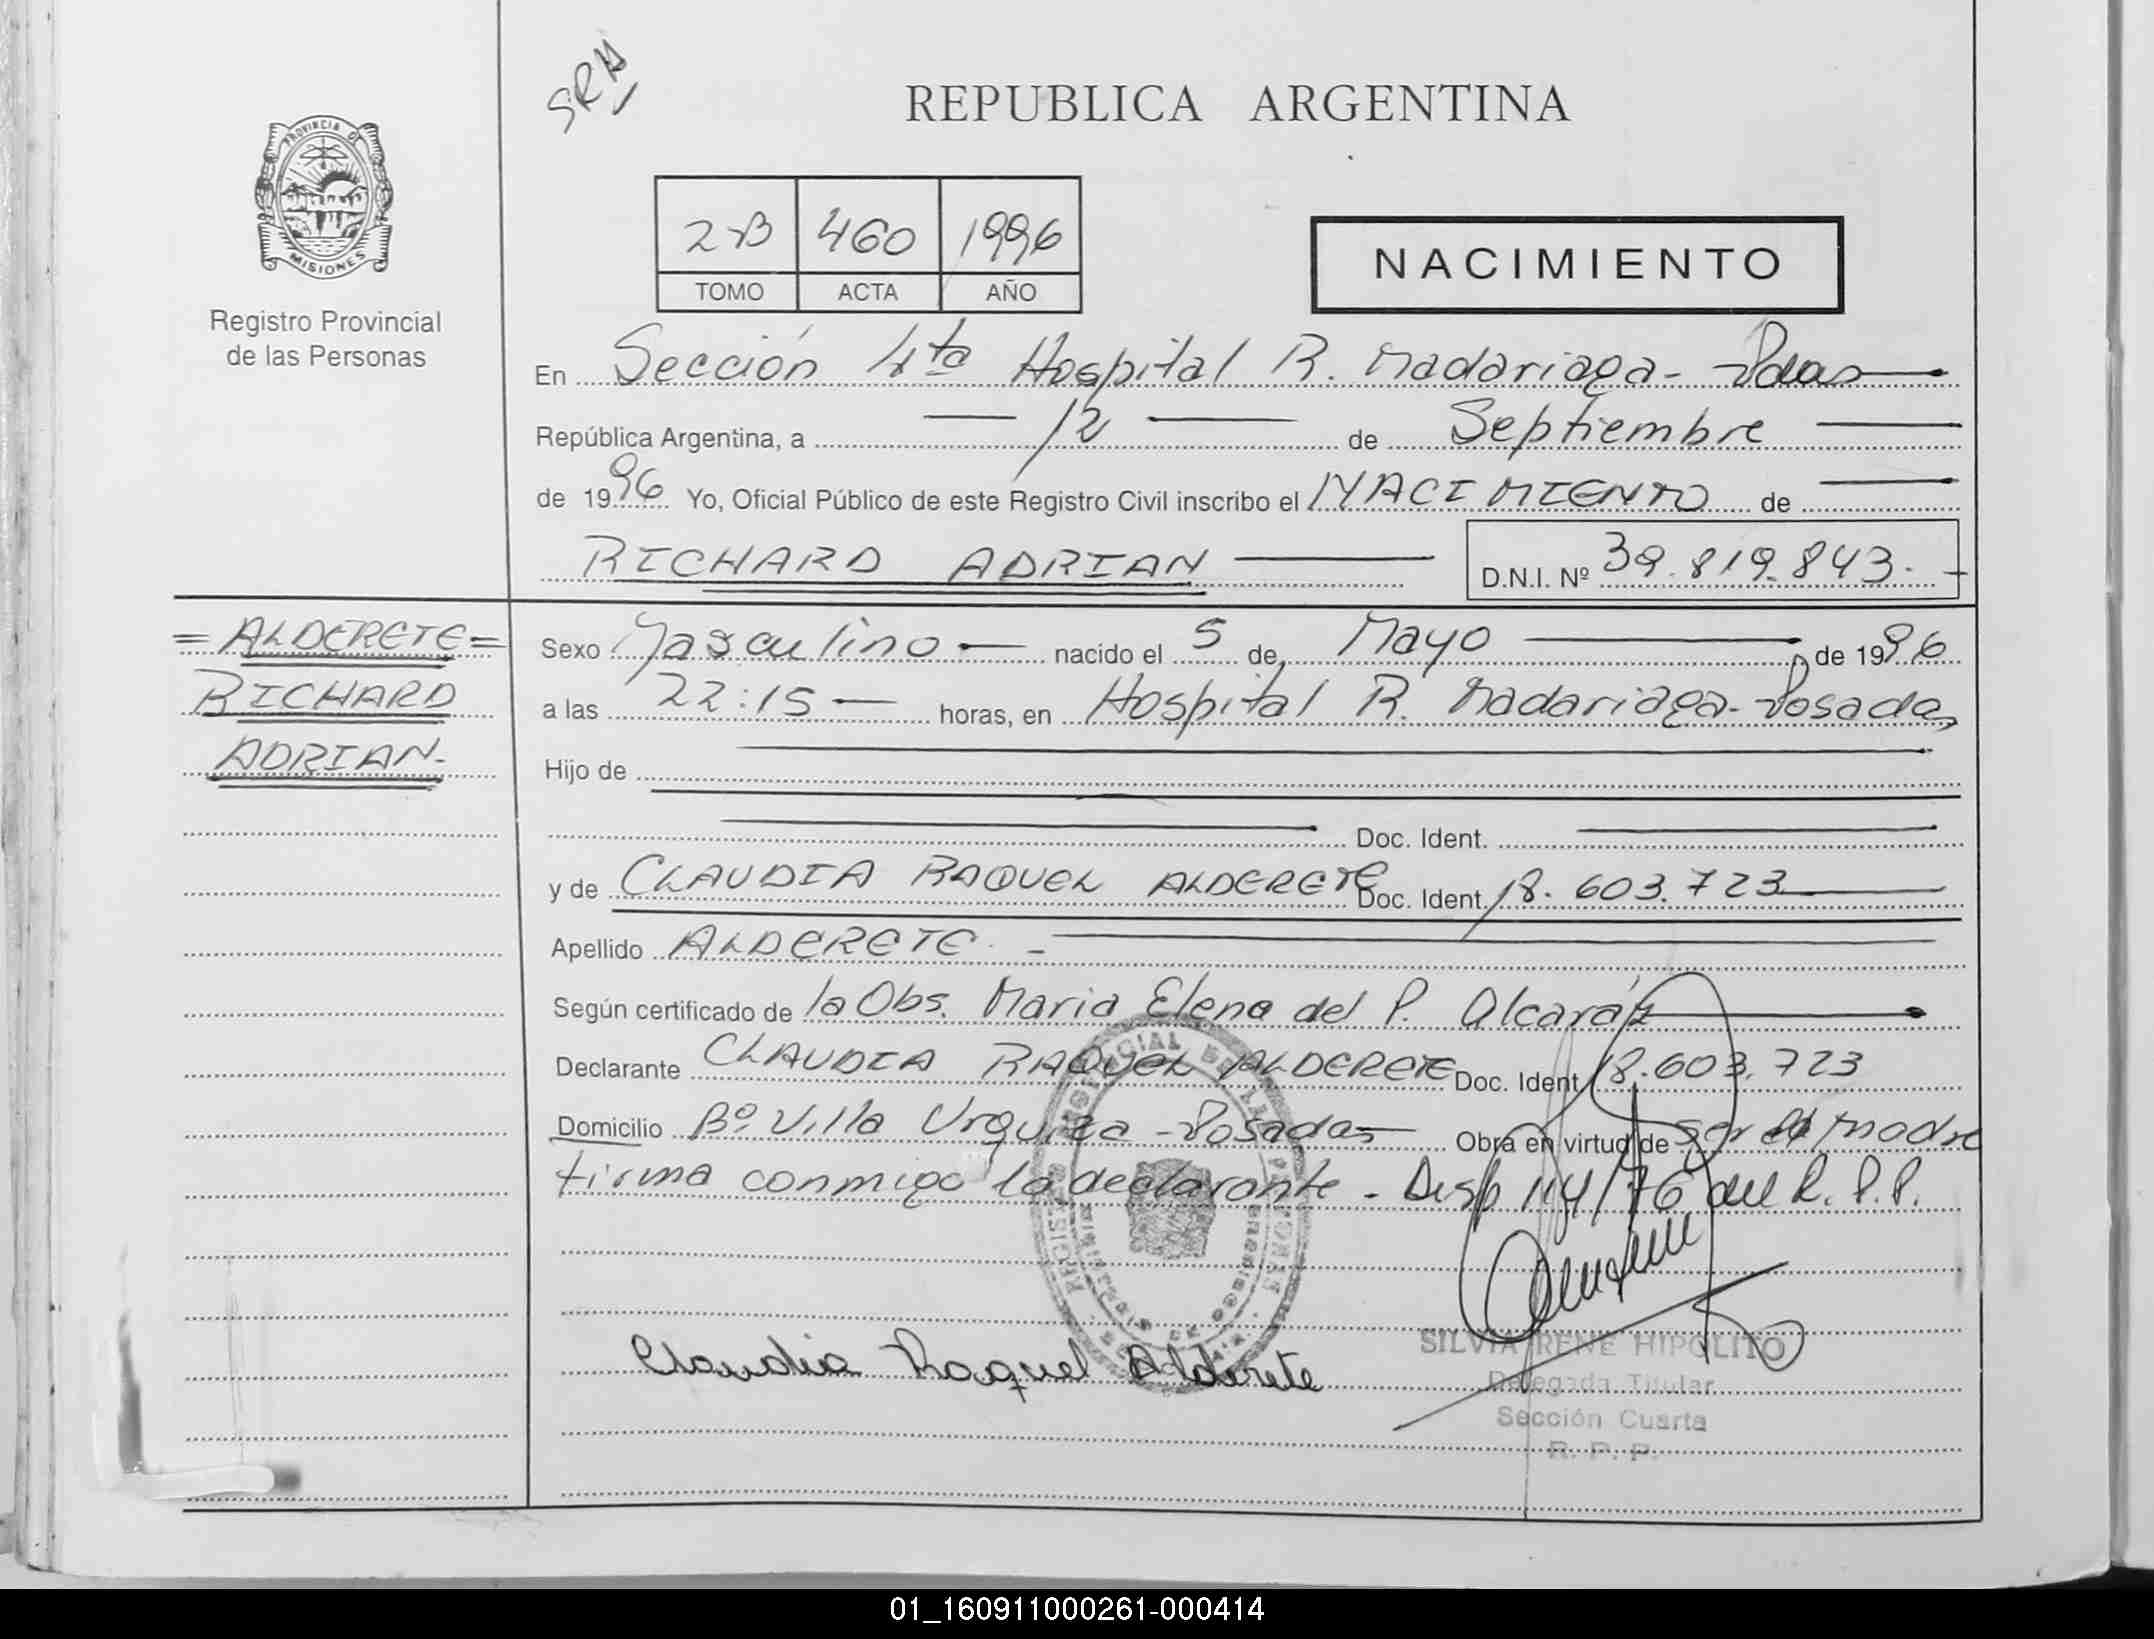 SRH
REPUBLICA ARGENTINA
PROVINCIA DE
MISIONES
Registro Provincial
de las Personas
2-B 460 1996
TOMO ACTA AÑO
NACIMIENTO
En Sección 4ta Hospital R. Madariaga - Pdas
República Argentina, a 12 de Septiembre
de 1996 Yo, Oficial Público de este Registro Civil inscribo el NACIMIENTO de
RICHARD ADRIAN D.N.I. Nº 39.819.843.-
= ALDERETE =
RICHARD
ADRIAN-
Sexo Masculino nacido el 5 de Mayo de 1996
a las 22:15 horas, en Hospital R. Madariaga - Posadas
Hijo de
Doc. Ident.
y de CLAUDIA RAQUEL ALDERETE Doc. Ident. 18.603.723
Apellido ALDERETE. -
Según certificado de la Obs. Maria Elena del P. Alcaráz
Declarante CLAUDIA RAQUEL ALDERETE Doc. Ident. 18.603.723
Domicilio Bº Villa Urquiza - Posadas Obra en virtud de ser madre
firma conmigo la declarante - Disp 114/76 del R.P.P.
Claudia Raquel Alderete
SILVIA IRENE HIPOLITO
Delegada Titular
Sección Cuarta
R. P. P.
01_160911000261-000414